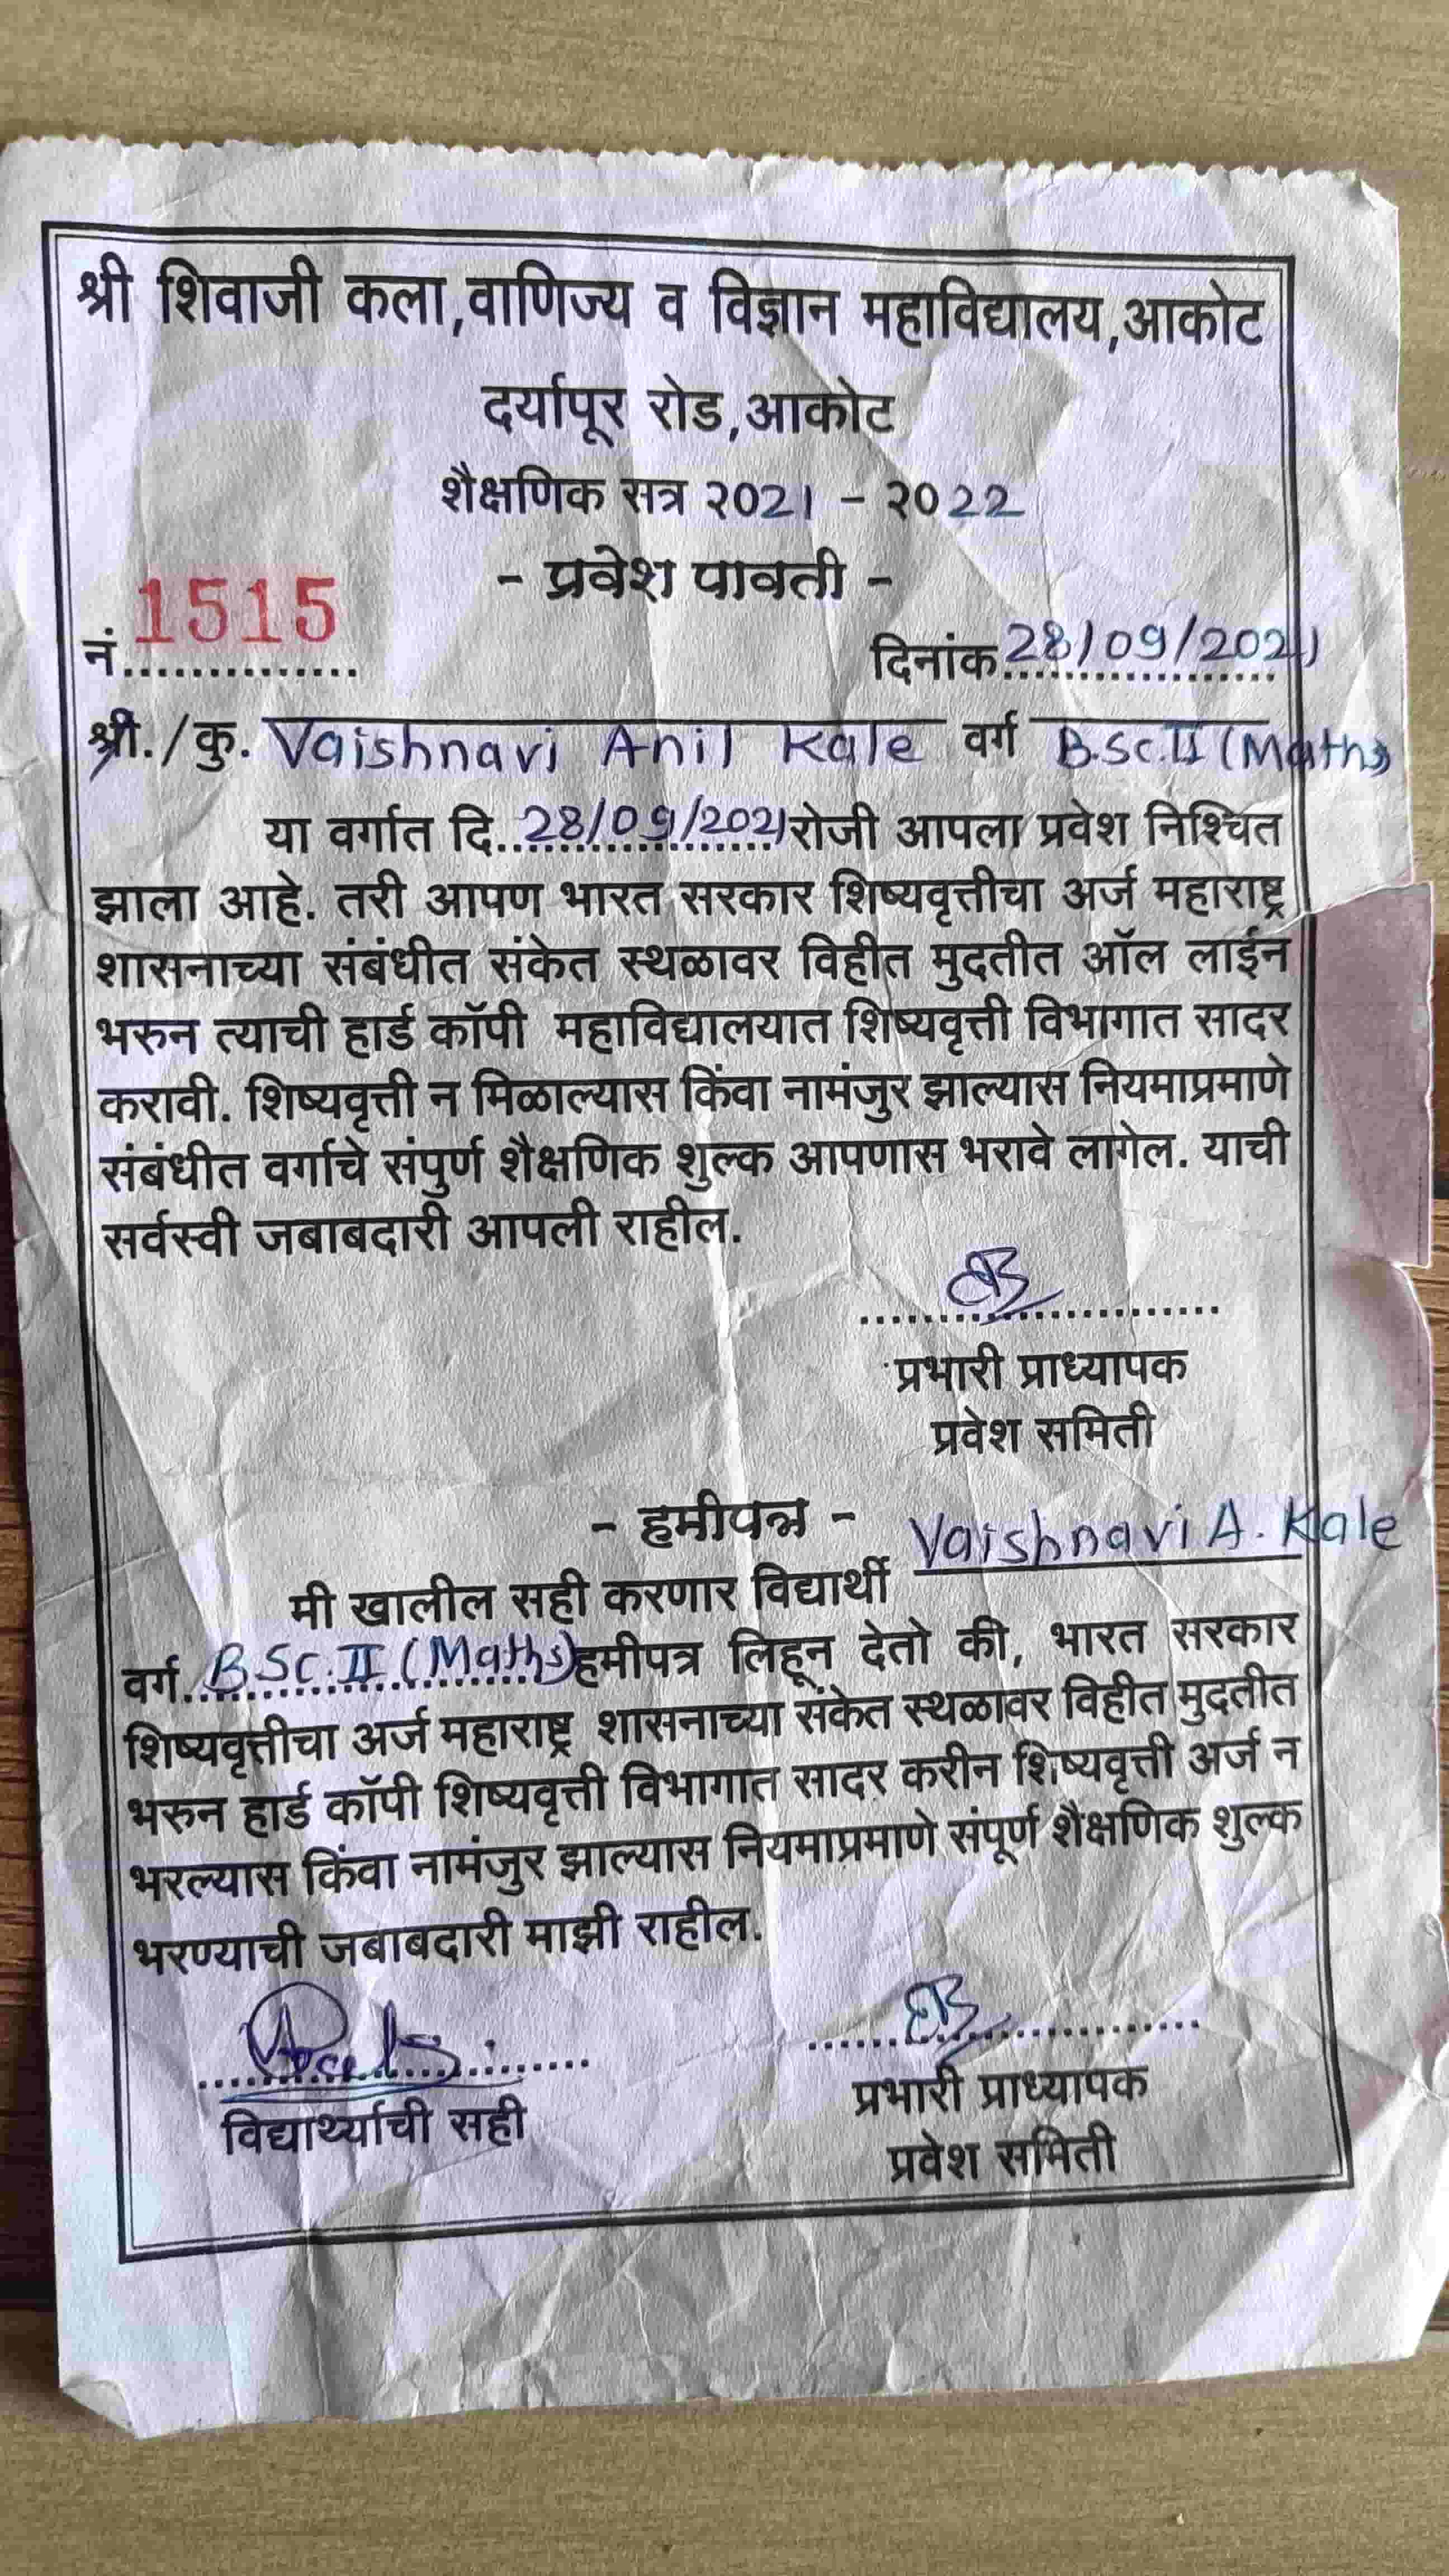 श्री शिवाजी कला,वाणिज्य व विज्ञान महाविद्यालय,आकोट
दर्यापूर रोड,आकोट
शैक्षणिक सत्र २०21 - २०22
- प्रवेश पावती -
नं.............. 1515 दिनांक 28/09/2021
श्री./कु. Vaishnavi Anil Kale वर्ग B.Sc.II (Maths)
या वर्गात दि. 28/09/2021 रोजी आपला प्रवेश निश्चित
झाला आहे. तरी आपण भारत सरकार शिष्यवृत्तीचा अर्ज महाराष्ट्र
शासनाच्या संबंधीत संकेत स्थळावर विहीत मुदतीत ऑल लाईन
भरुन त्याची हार्ड कॉपी महाविद्यालयात शिष्यवृत्ती विभागात सादर
करावी. शिष्यवृत्ती न मिळाल्यास किंवा नामंजुर झाल्यास नियमाप्रमाणे
संबंधीत वर्गाचे संपुर्ण शैक्षणिक शुल्क आपणास भरावे लागेल. याची
सर्वस्वी जबाबदारी आपली राहील.
प्रभारी प्राध्यापक
प्रवेश समिती
- हमीपत्र -
मी खालील सही करणार विद्यार्थी Vaishnavi A. Kale
वर्ग B.Sc.II (Maths) हमीपत्र लिहून देतो की, भारत सरकार
शिष्यवृत्तीचा अर्ज महाराष्ट्र शासनाच्या संकेत स्थळावर विहीत मुदतीत
भरुन हार्ड कॉपी शिष्यवृत्ती विभागात सादर करीन शिष्यवृत्ती अर्ज न
भरल्यास किंवा नामंजुर झाल्यास नियमाप्रमाणे संपूर्ण शैक्षणिक शुल्क
भरण्याची जबाबदारी माझी राहील.
विद्यार्थ्याची सही
प्रभारी प्राध्यापक
प्रवेश समिती